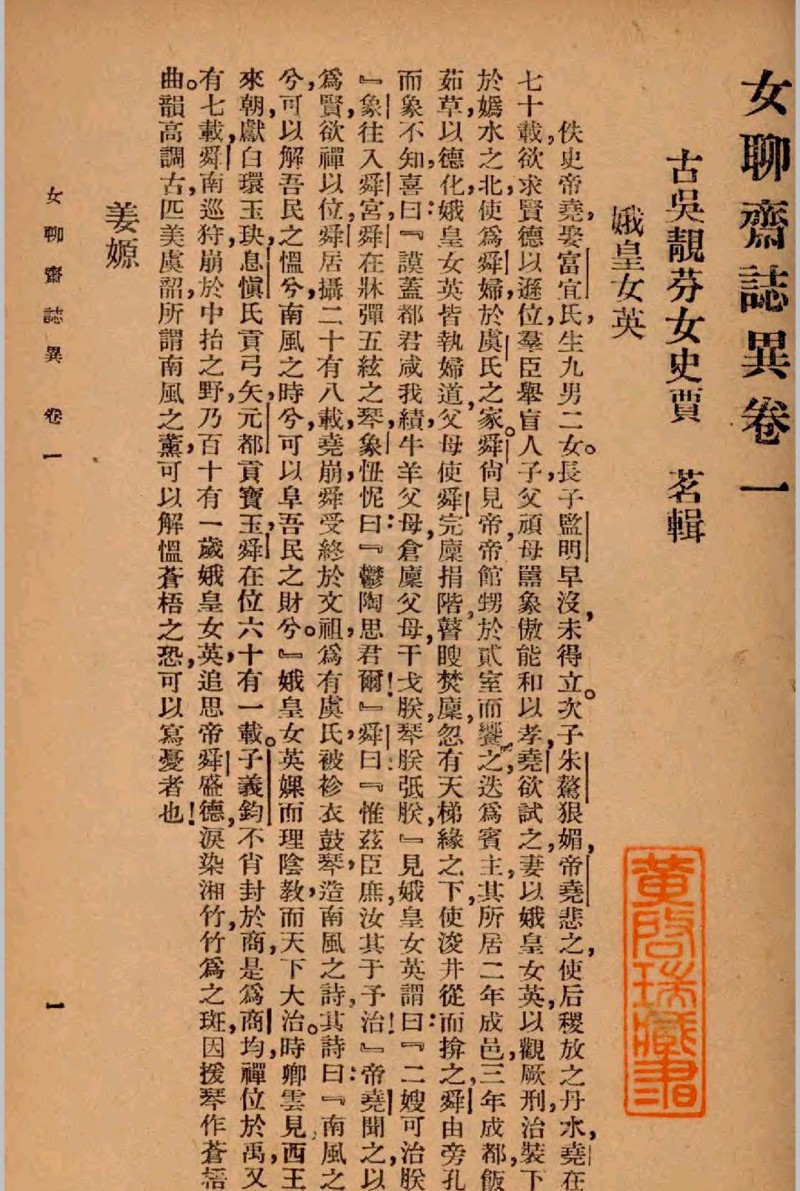 女聊齋誌異卷一
古吳靚芬女史賈　茗輯
娥皇女英
佚史帝堯，娶富宜氏，生九男二女。長子監明早沒，未得立。次子朱驁狠媚，帝堯悲之，使后稷放之丹水，堯在
七十載，欲求賢德以遜位，羣臣舉盲人子，父頑母嚚象傲能和以孝，堯欲試之，妻以娥皇女英，以觀厥刑，治裝下
於嬀水之北，使爲舜婦，於虞氏之家。舜尙見帝，帝館甥於貳室而饗之，迭爲賓主，其所居二年成邑，三年成都，飯
茹草，以德化，娥皇女英皆執婦道，父母使舜完廩捐階，瞽瞍焚廩，忽有天梯緣之下，使浚井從而揜之，舜由旁孔
而象不知，喜曰：『謨蓋都君咸我績，牛羊父母，倉廩父母，干戈朕，琴朕弤朕，』見娥皇女英謂曰：『二嫂可治朕
』象往入舜宮，舜在牀彈五絃之琴，象忸怩曰：『鬱陶思君爾！』舜曰：『惟茲臣庶，汝其于予治！』帝堯聞之，以
爲賢，欲禪以位，舜居攝二十有八載，堯崩，舜受終於文祖，爲有虞氏，被袗衣鼓琴，造南風之詩，其詩曰：『南風之
兮，可以解吾民之慍兮，南風之時兮，可以阜吾民之財兮。』娥皇女英婐而理陰敎，而天下大治。時卿雲見，西王
來朝，獻白環玉玦，息愼氏貢弓矢，元都貢寶玉，舜在位六十有一載。子義鈞不肖封於商，是爲商均，禪位於禹，又
有七載，舜南巡狩，崩於中抬之野，乃百十有一歲，娥皇女英，追思帝舜盛德，淚染湘竹，竹爲之斑，因援琴作蒼梧
曲。韻高調古，匹美虞韶，所謂南風之薰，可以解慍，蒼梧之恐，可以寫憂者也！
姜嫄
女聊齋誌異　卷一
一
董啓瑞藏書